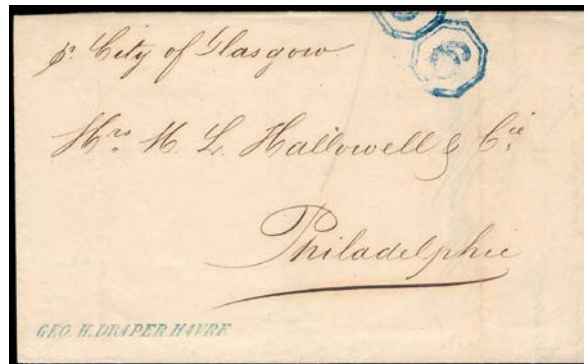 p. City of Glasgow
6
6
Mrs. M. L. Hallowell & Cie
Philadelphie
GEO. H. DRAPER HAVRE